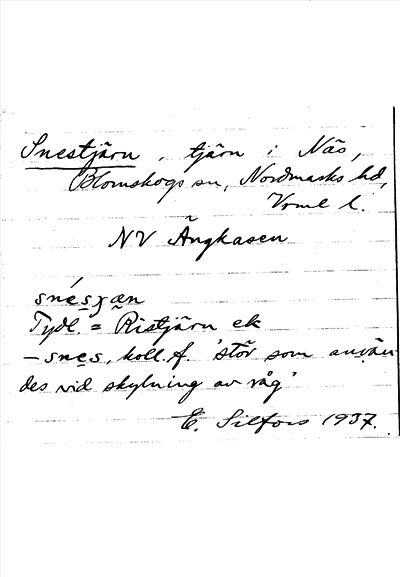 Snestjärn, tjärn i Näs,
Blomskogs sn, Nordmarks hd,
Vrml l.
NV Ängkasen
Tydl. = Ristjärn ek
– snes, koll. f. 'stör som använ
des vid skylning av råg'
E. Silfors 1937.